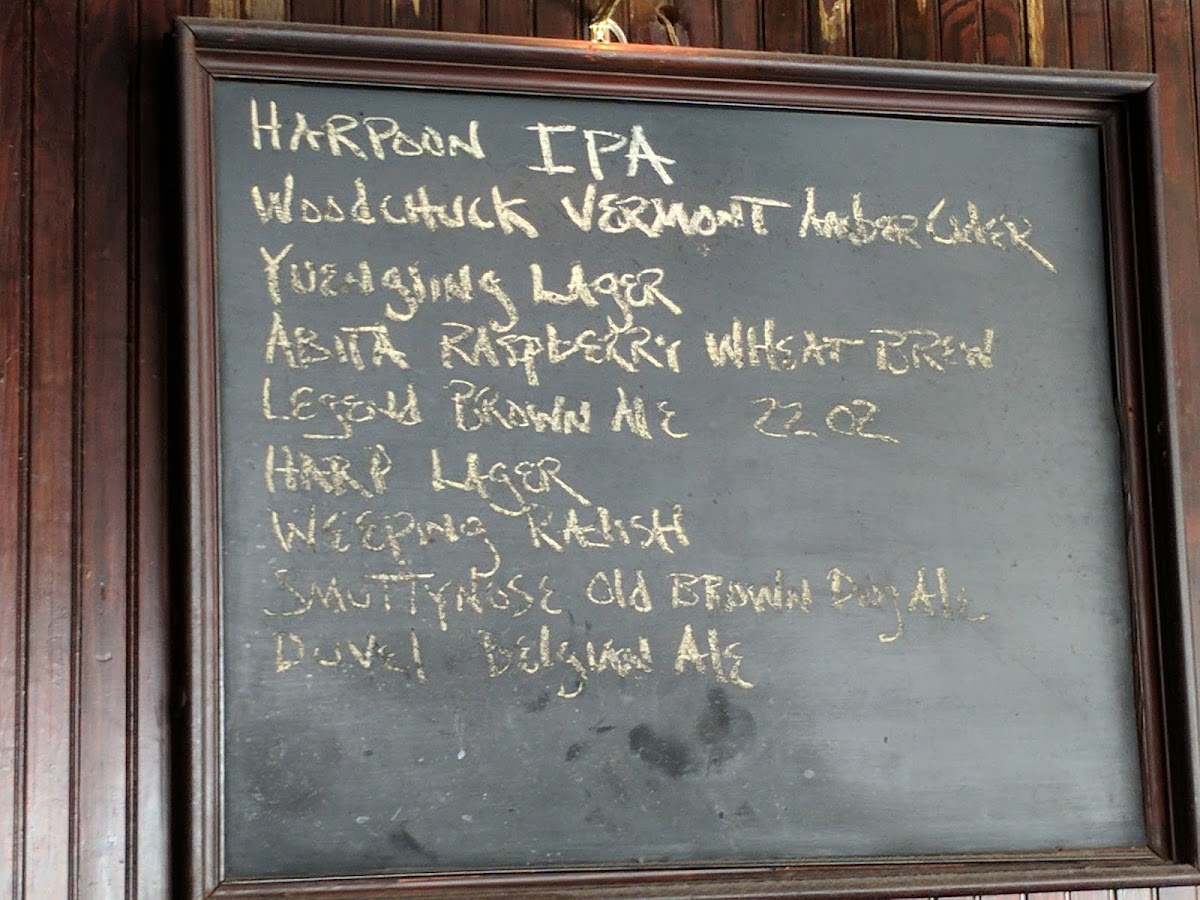 HARPOON IPA
WOODCHUCK VERMONT AMBER CIDER
YUENGLING LAGER
ABITA RASPBERRY WHEAT BREW
LEGEND BROWN ALE 22 OZ
HARP LAGER
WEEPING RADISH
SMUTTYNOSE Old BROWN Dog Ale
DUVEl BElgian Ale